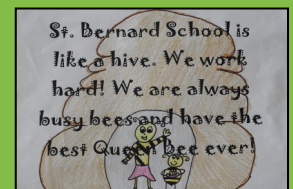 St. Bernard School is
like a hive. We work
hard! We are always
busy bees and have the
best Queen Bee ever!